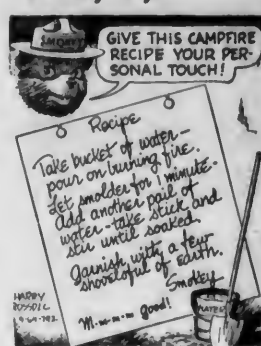 SMOKEY
GIVE THIS CAMPFIRE
RECIPE YOUR PER-
SONAL TOUCH!
Recipe
Take bucket of water —
pour on burning fire.
Let smolder for 1 minute.
Add another pail of
water - take stick and
stir until soaked.
Garnish with a few
shovelsful of earth.
Smokey
M-m-m-m good!
HARRY
ROSSOLL
WATER